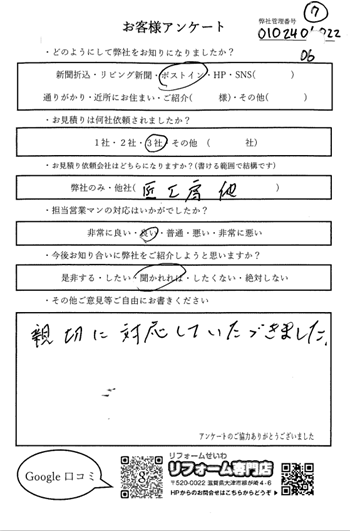 ⑦
お客様アンケート
弊社管理番号
06
・どのようにして弊社をお知りになりましたか？
新聞折込・リビング新聞・ポストイン・HP・SNS(　　　)
通りがかり・近所にお住まい・ご紹介(　　　様)・その他(　　　)
・お見積りは何社依頼されましたか？
1社・2社・3社 その他（　　　社）
・お見積り依頼会社はどちらになりますか？(書ける範囲で結構です)
弊社のみ・他社( 匠工房 他 )
・担当営業マンの対応はいかがでしたか？
非常に良い・良い・普通・悪い・非常に悪い
・今後お知り合いに弊社をご紹介しようと思いますか？
是非する・したい・聞かれれば・したくない・絶対しない
・その他ご意見等ご自由にお書きください
親切に対応していただきました。
アンケートのご協力ありがとうございました
Google 口コミ
リフォームせいわ
リフォーム専門店
〒520-0022 滋賀県大津市柳が崎4-6
HPからのお問合せはこちらからどうぞ▶